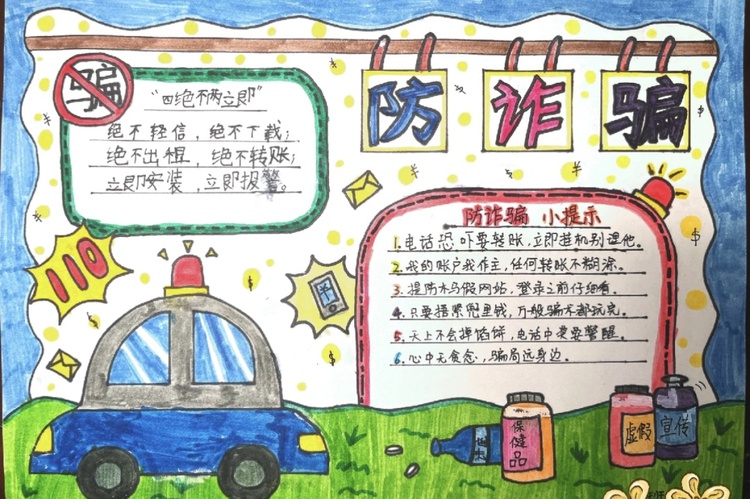 防诈骗
骗
“四绝不两立即”
绝不轻信，绝不下载；
绝不出租，绝不转账；
立即安装，立即报警。
110
防诈骗 小提示
1.电话恐吓要转账，立即挂机别理他。
2.我的账户我作主，任何转账不糊涂。
3.提防木马假网站，登录之前仔细看。
4.只要捂紧兜里钱，万般骗术都玩完。
5.天上不会掉馅饼，电话中奖要警醒。
6.心中无贪念，骗局远身边。
保健品
虚假
宣传